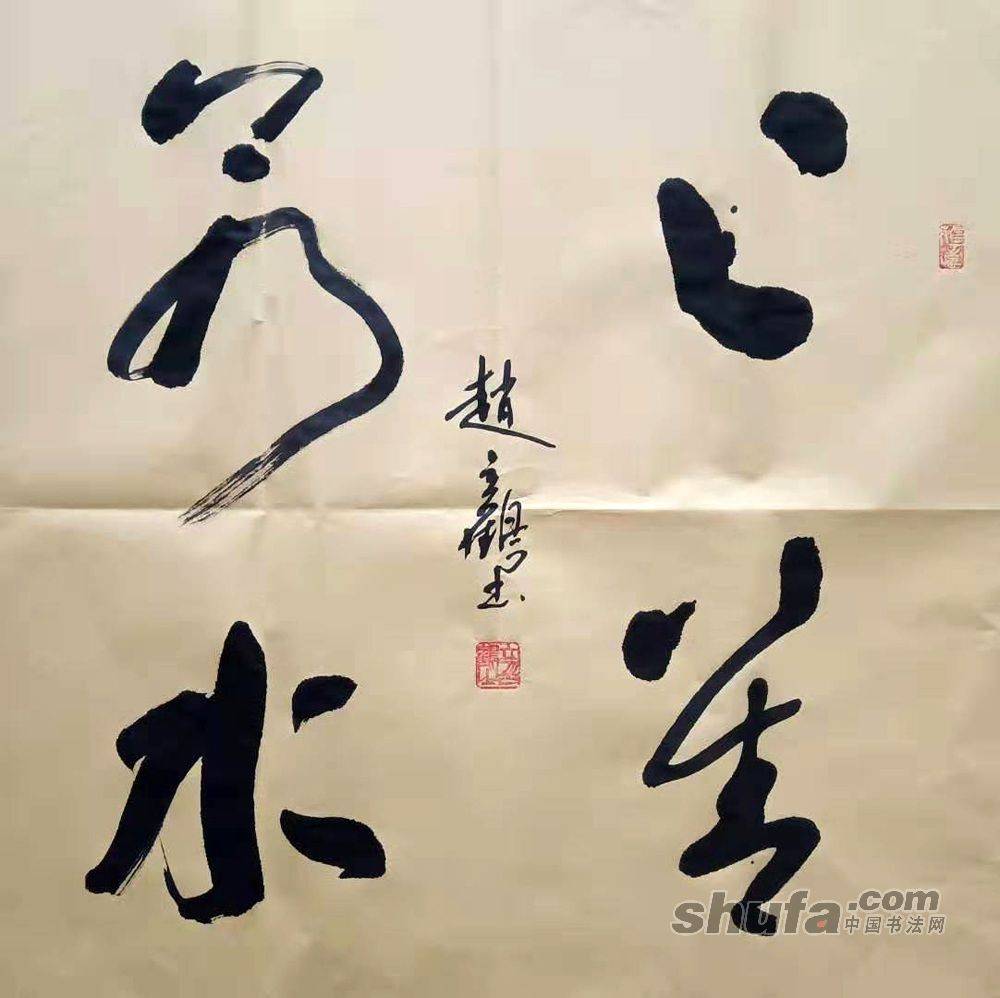 上善
若水
趙立鶴书
shufa.com
中国书法网